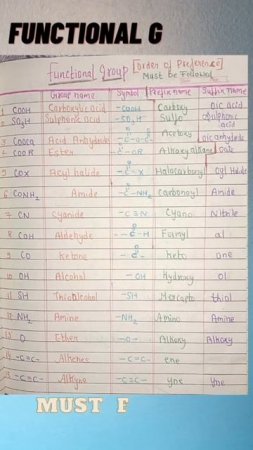 FUNCTIONAL G
Functional Group [Order of Preference]
Must be Followed
Group name Symbol Prefix name Suffix Name
1 COOH Carboxylic acid -COOH Carboxy oic acid
2 SO₃H Sulphonic acid -SO₃H Sulfo Sulphonic acid
3 Acid Anhydride Acetoxy oic anhydride
4 COOR Ester -C-OR oate
5 COX Acyl halide -C-X Halocarbonyl oyl Halide
6 CONH₂ Amide -C-NH₂ Carbonoyl Amide
7 CN Cyanide -C≡N Cyano Nitrile
8 COH Aldehyde -C-H Formyl al
9 CO Ketone -C- Keto one
10 OH Alcohol -OH Hydroxy ol
11 SH Thioalcohol -SH Mercapto thiol
12 NH₂ Amine -NH₂ Amino Amine
13 O Ether -O- Alkoxy Alkoxy
14 -C=C- Alkenes -C=C- ene
15 -C≡C- Alkyne -C≡C- yne yne
MUST F